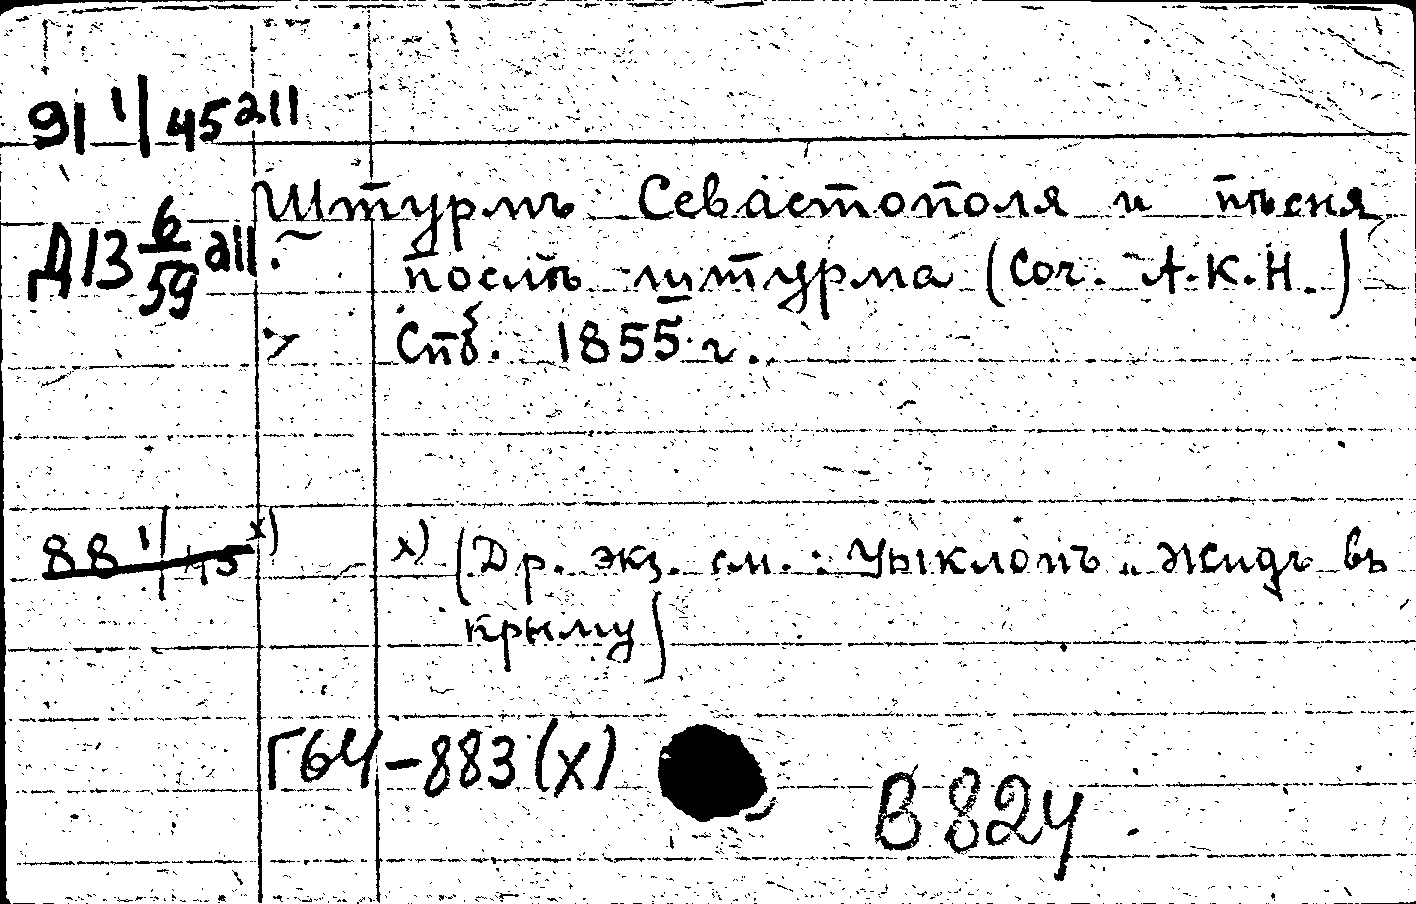 91 1/45 all
Штурмъ Севастополя и пѣсня
Д13 6/59 all.
послѣ штурма (Соч. А.К.Н.)
Спб. 1855 г.
88 1/45 х)
х) (Др. экз. см.: Цыклопъ „Жидъ въ
крыму)
Г64-883(х)
В 824.